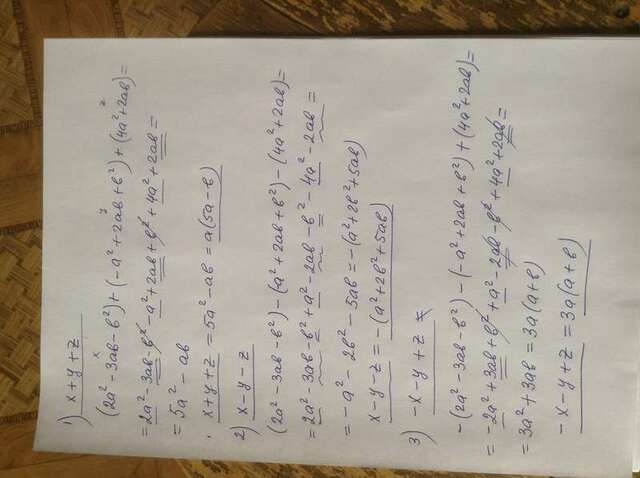 1) x + y + z
x y z
(2a² - 3ab - b²) + (-a² + 2ab + b²) + (4a² + 2ab) =
= 2a² - 3ab - b² - a² + 2ab + b² + 4a² + 2ab =
= 5a² - ab
x + y + z = 5a² - ab = a(5a - b)
2) x - y - z
(2a² - 3ab - b²) - (a² + 2ab + b²) - (4a² + 2ab) =
= 2a² - 3ab - b² + a² - 2ab - b² - 4a² - 2ab =
= -a² - 2b² - 5ab = -(a² + 2b² + 5ab)
x - y - z = -(a² + 2b² + 5ab)
3) -x - y + z
-(2a² - 3ab - b²) - (-a² + 2ab + b²) + (4a² + 2ab) =
= -2a² + 3ab + b² + a² - 2ab - b² + 4a² + 2ab =
= 3a² + 3ab = 3a(a + b)
-x - y + z = 3a(a + b)